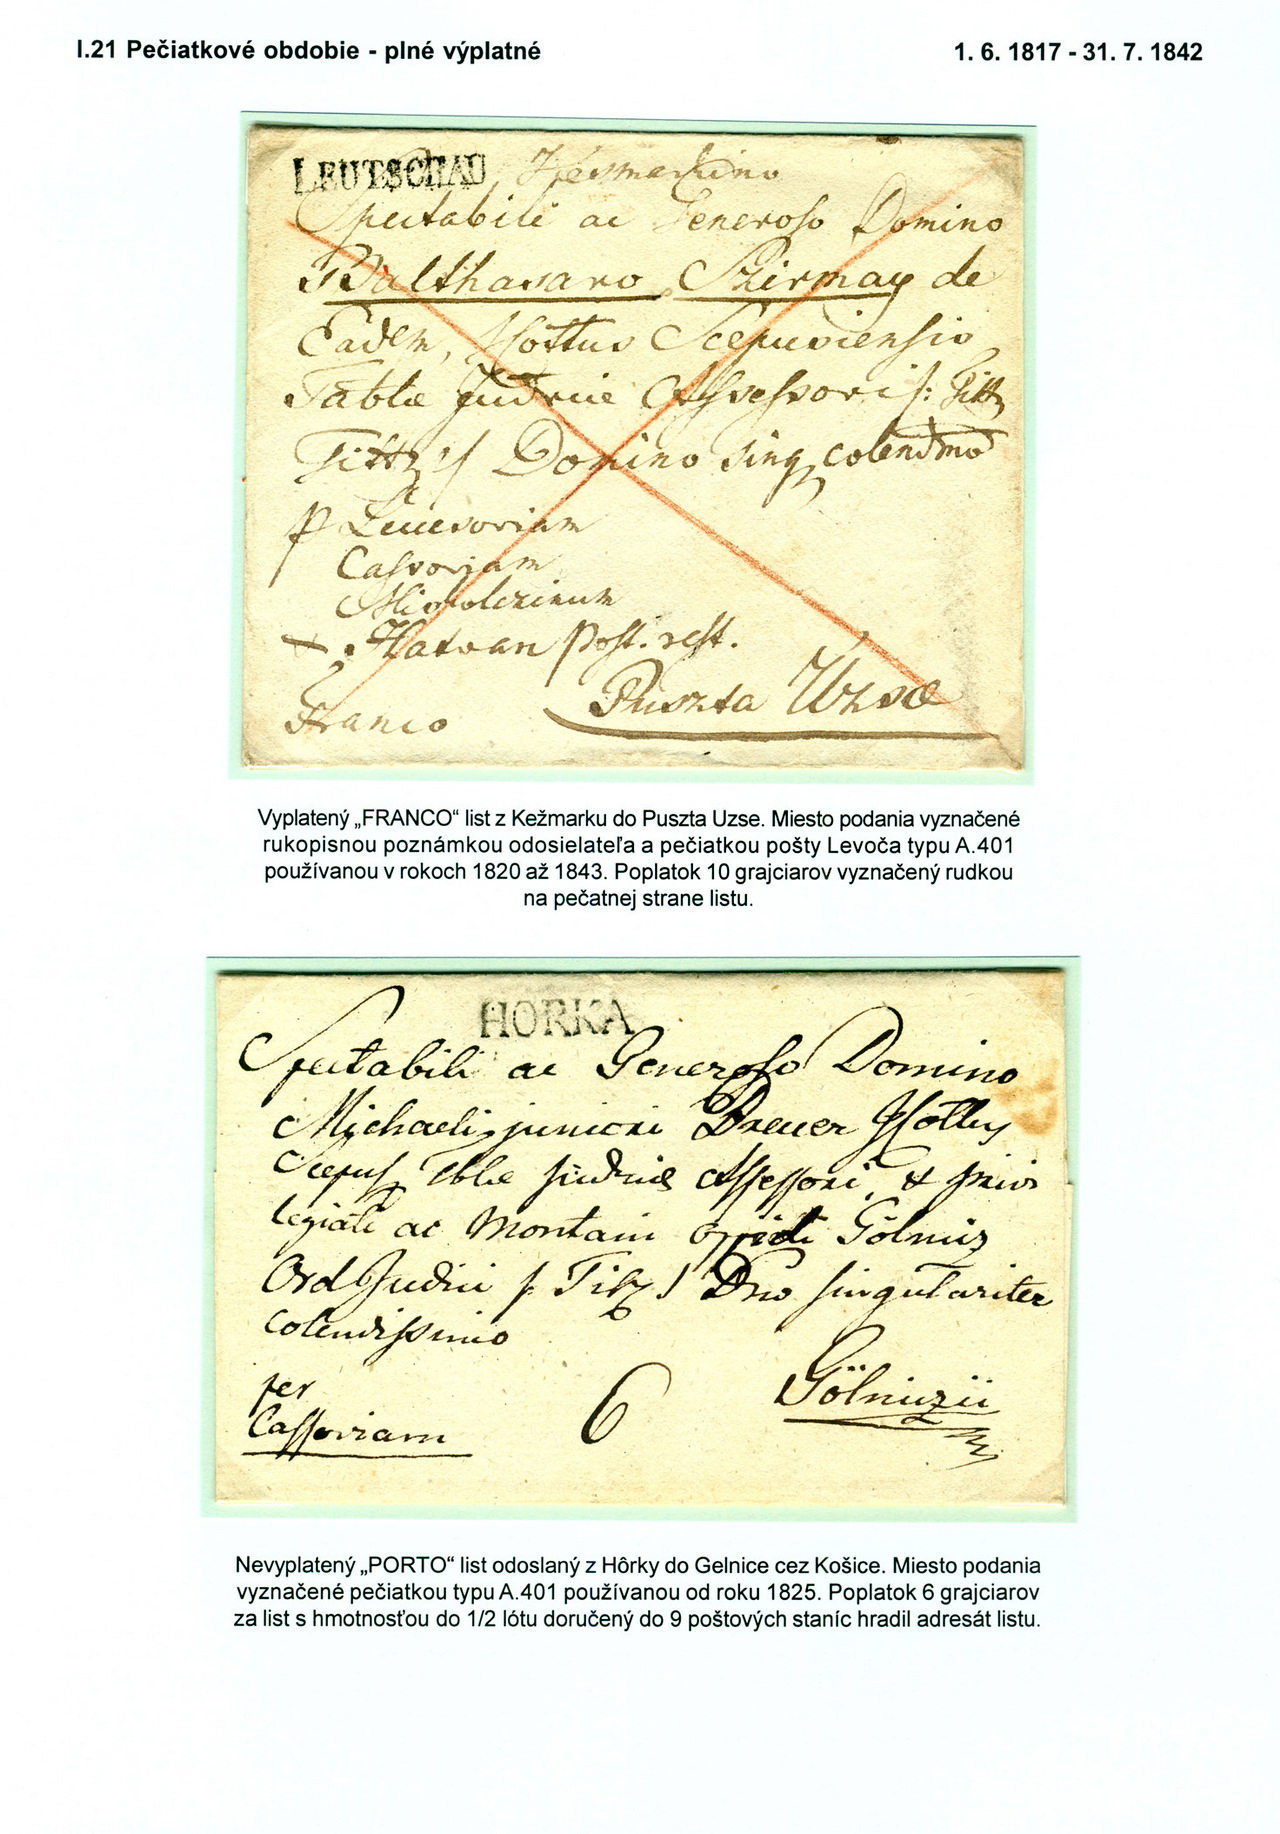 I.21 Pečiatkové obdobie - plné výplatné
1. 6. 1817 - 31. 7. 1842
LEUTSCHAU Kesmarkino
Spectabili ac Generoso Domino
Balthasaro Szirmay de
Eadem, Scepusiensis
Tablæ Assessori
Domino sing colendmo
p Leucsoviam
Cassoviam
Miskolczinum
Hatvan post. rest.
Puszta Uzse
Franco
Vyplatený „FRANCO“ list z Kežmarku do Puszta Uzse. Miesto podania vyznačené
rukopisnou poznámkou odosielateľa a pečiatkou pošty Levoča typu A.401
používanou v rokoch 1820 až 1843. Poplatok 10 grajciarov vyznačený rudkou
na pečatnej strane listu.
HORKA
Spectabili ac Generoso Domino
Michaeli juniori Breuer
Assessori, & privi
legiati ac Montani oppidi Gölnicz
Ord Judici Dno singulariter
colendissimo
per
Cassoviam
6
Gölniczii
Nevyplatený „PORTO“ list odoslaný z Hôrky do Gelnice cez Košice. Miesto podania
vyznačené pečiatkou typu A.401 používanou od roku 1825. Poplatok 6 grajciarov
za list s hmotnosťou do 1/2 lótu doručený do 9 poštových staníc hradil adresát listu.